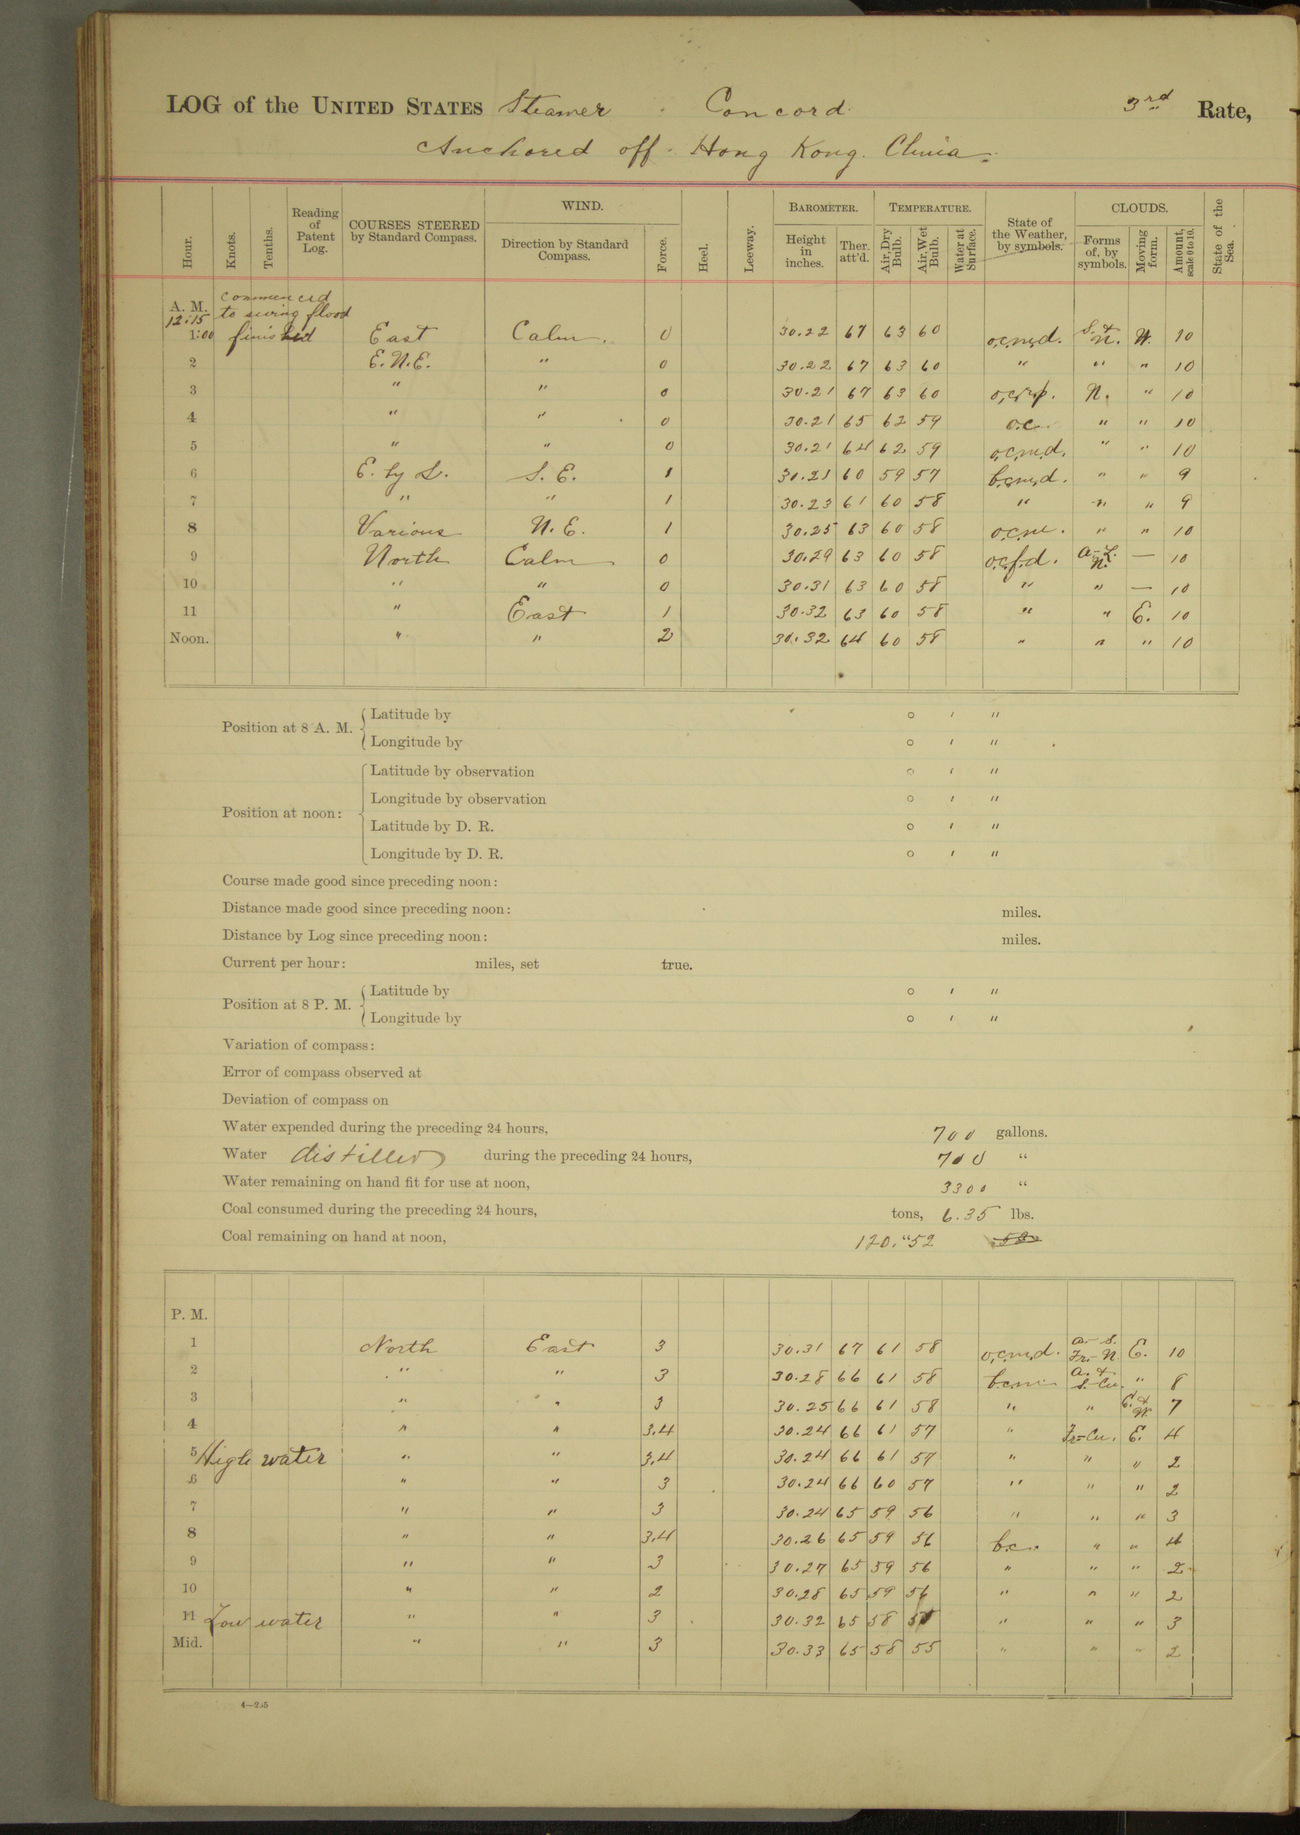 LOG of the UNITED STATES Steamer Concord 3rd Rate,
Anchored off Hong Kong. China.
Hour. Knots. Tenths. Reading of Patent Log. COURSES STEERED by Standard Compass. WIND. Direction by Standard Compass. Force. Heel. Leeway. BAROMETER. Height in inches. Ther. att'd. TEMPERATURE. Air, Dry Bulb. Air, Wet Bulb. Water at Surface. State of the Weather, by symbols. CLOUDS. Forms of, by symbols. Moving form. Amount, scale 0 to 10. State of the Sea.
A. M. commenced
12:15 to swing flood
1:00 finished East Calm. 0 30.22 67 63 60 o.c.m.d. S. & N. W. 10
2 E.N.E. " 0 30.22 67 63 60 " " " 10
3 " " 0 30.21 67 63 60 N. " 10
4 " " 0 30.21 65 62 59 o.c. " " 10
5 " " 0 30.21 64 62 59 o.c.m.d. " " 10
6 E. by S. S. E. 1 30.21 60 59 57 b.c.m.d. " " 9
7 " " 1 30.23 61 60 58 " " " 9
8 Various N. E. 1 30.25 63 60 58 o.c.m. " " 10
9 North Calm 0 30.29 63 60 58 o.c.f.d. N. — 10
10 " " 0 30.31 63 60 58 " " — 10
11 " East 1 30.32 63 60 58 " " E. 10
Noon. " " 2 30.32 64 60 58 " " " 10
Position at 8 A. M. Latitude by ° ' "
Longitude by ° ' "
Position at noon: Latitude by observation ° ' "
Longitude by observation ° ' "
Latitude by D. R. ° ' "
Longitude by D. R. ° ' "
Course made good since preceding noon:
Distance made good since preceding noon: miles.
Distance by Log since preceding noon: miles.
Current per hour: miles, set true.
Position at 8 P. M. Latitude by ° ' "
Longitude by ° ' "
Variation of compass:
Error of compass observed at
Deviation of compass on
Water expended during the preceding 24 hours, 700 gallons.
Water distilled during the preceding 24 hours, 700 "
Water remaining on hand fit for use at noon, 3300 "
Coal consumed during the preceding 24 hours, tons, 6.35 lbs.
Coal remaining on hand at noon, 120. "52
P. M.
1 North East 3 30.31 67 61 58 o.c.m.d. a.-S. Fr.-N. E. 10
2 " " 3 30.28 66 61 58 b.c.m. a. & S.-Cu. " 8
3 " " 3 30.25 66 61 58 " " E. & W. 7
4 " " 3.4 30.24 66 61 57 " Fr-Cu. E. 4
5 High water " " 3.4 30.24 66 61 57 " " " 2
6 " " 3 30.24 66 60 57 " " " 2
7 " " 3 30.24 65 59 56 " " " 3
8 " " 3.4 30.26 65 59 56 b.c. " " 4
9 " " 3 30.27 65 59 56 " " " 2
10 " " 2 30.28 65 59 56 " " " 2
11 Low water " " 3 30.32 65 58 " " " 3
Mid. " " 3 30.33 65 58 55 " " " 2